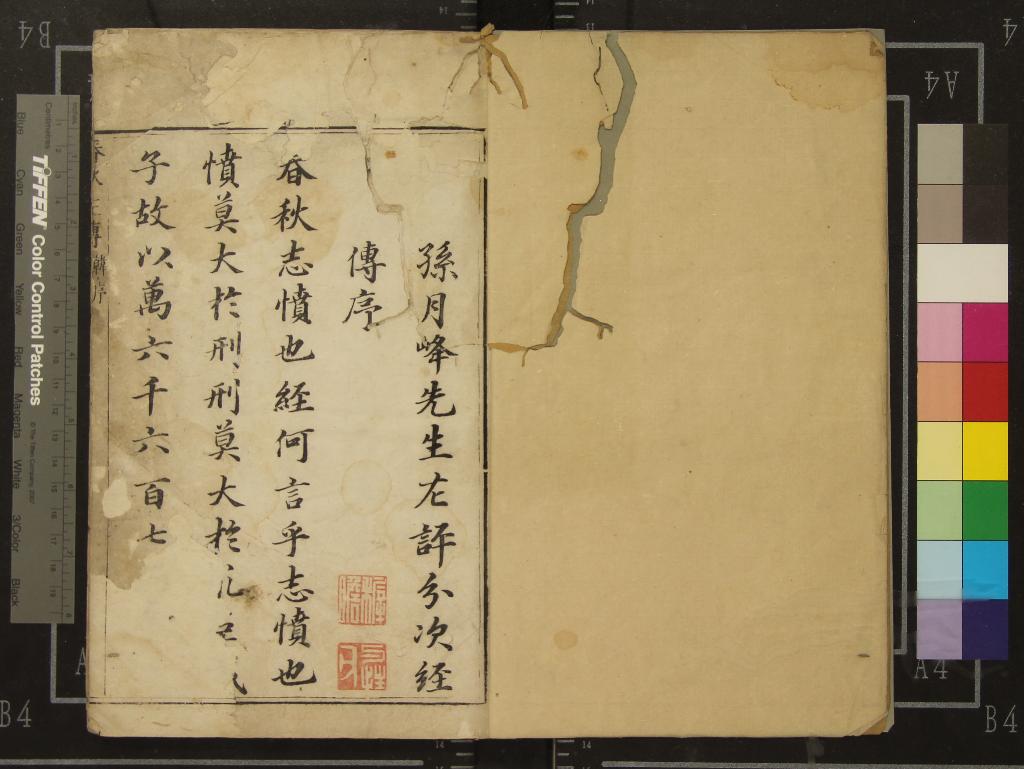 孫月峰先生左評分次經
傳序
春秋志憤也經何言乎志憤也
憤莫大於刑刑莫大於
子故以萬六千六百七
TIFFEN Color Control Patches
© The Tiffen Company, 2007
Centimetres
Inches
Blue
Cyan
Green
Yellow
Red
Magenta
White
3/Color
Black
B4
A4
4
B4
A4
B4